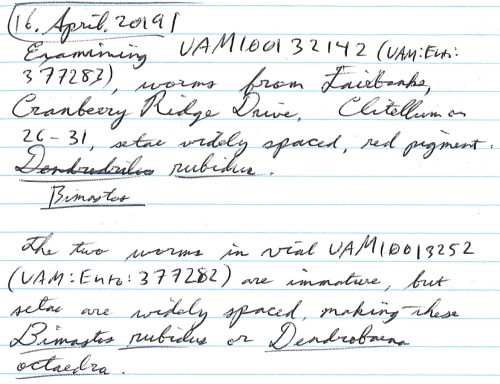 16. April. 2019
Examining UAM100132142 (UAM:Ento:
377283), worms from Fairbanks,
Cranberry Ridge Drive, Clitellum on
26-31, setae widely spaced, red pigment.
Dendrodrilus rubidus.
Bimastos
The two worms in vial UAM10013252
(UAM:Ento:377282) are immature, but
setae are widely spaced, making these
Bimastos rubidus or Dendrobaena
octaedra.